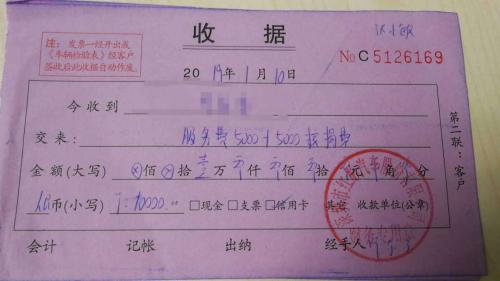 注：发票一经开出或
《车辆检验表》经客户
签收后此收据自动作废。
收 据
No C 5126169
2019年1月10日
今收到
交来：服务费5000+5000抵押费
金额(大写) ⊗佰⊗拾壹万 仟 佰 拾 元 角 分
币(小写) 10000.00 □现金 □支票 □信用卡 其它 收款单位(公章)
会计 记帐 出纳 经手人
第二联：客户
汽车服务有限公司
财务专用章